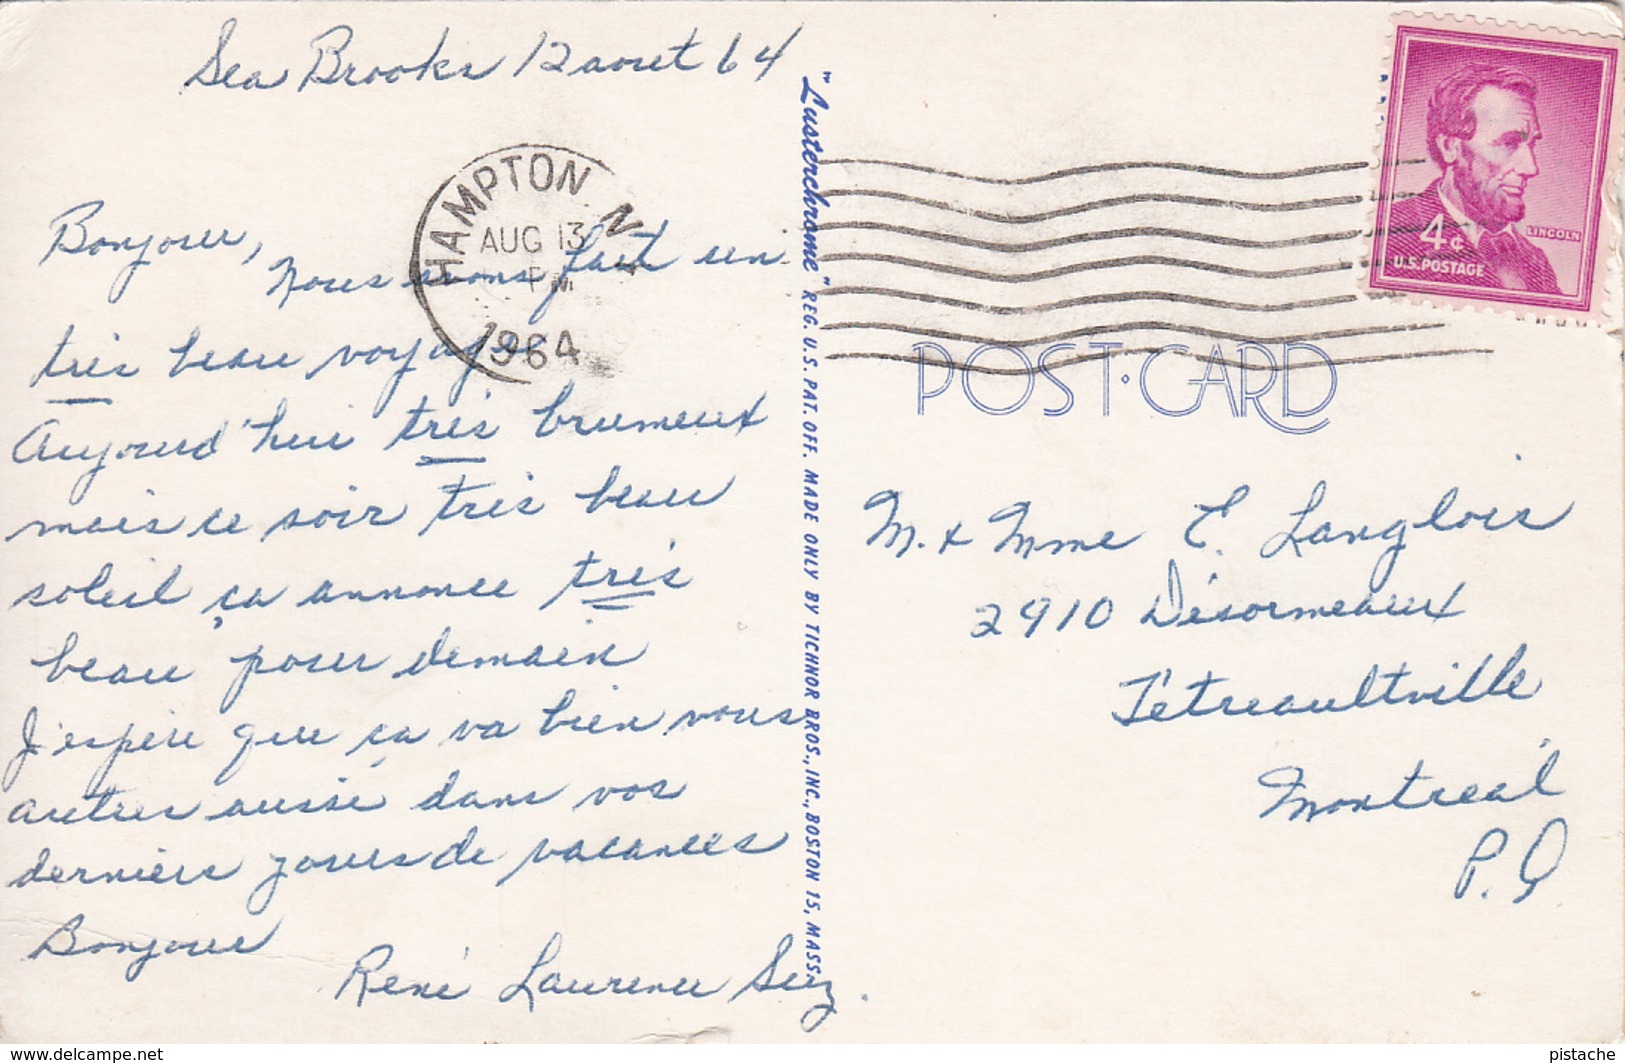 Sea Brooks 12 aout 64
Bonjour,
Nous avons fait un
très beau voyage
Aujourd'hui très brumeux
mais ce soir très beau
soleil ça annonce très
beau pour demain
J'espère que ça va bien vous
autres aussi dans vos
derniers jours de vacances
Bonjour
René Laurence Suz.
HAMPTON N.
AUG 13
PM
1964
"Lusterchrome" REG. U.S. PAT. OFF. MADE ONLY BY TICHNOR BROS., INC., BOSTON 15, MASS.
4¢
LINCOLN
U.S. POSTAGE
POST·CARD
M. & Mme E. Langlois
2910 Désormeaux
Tétreaultville
Montréal
P.Q
www.delcampe.net
pistache